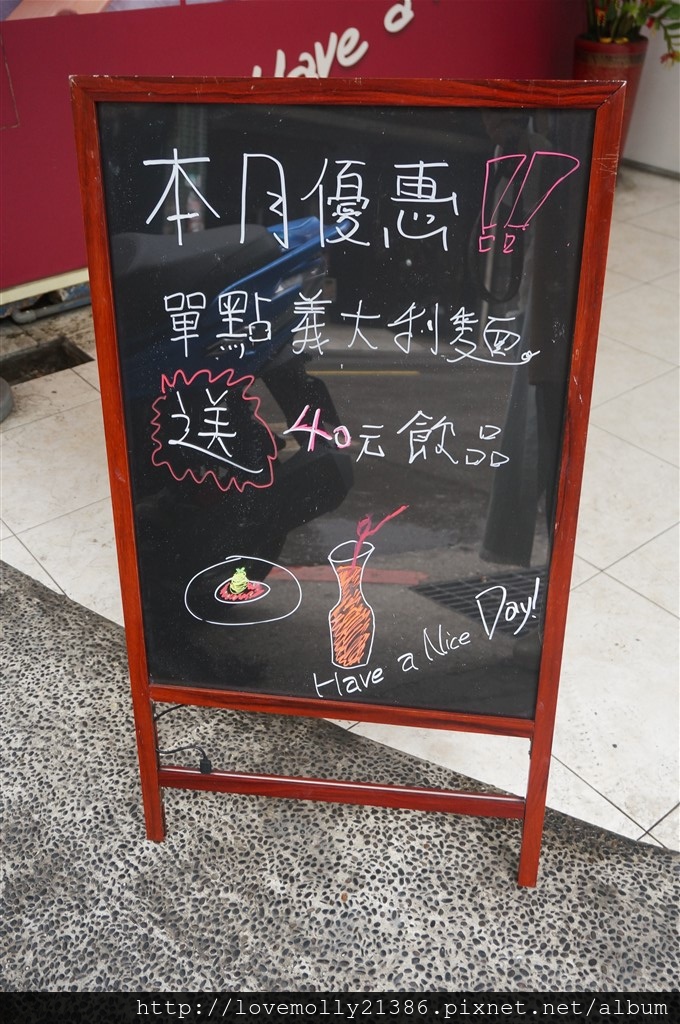 Have a
本月優惠!!
單點義大利麵
送40元飲品
Have a Nice Day!
http://lovemolly21386.pixnet.net/album